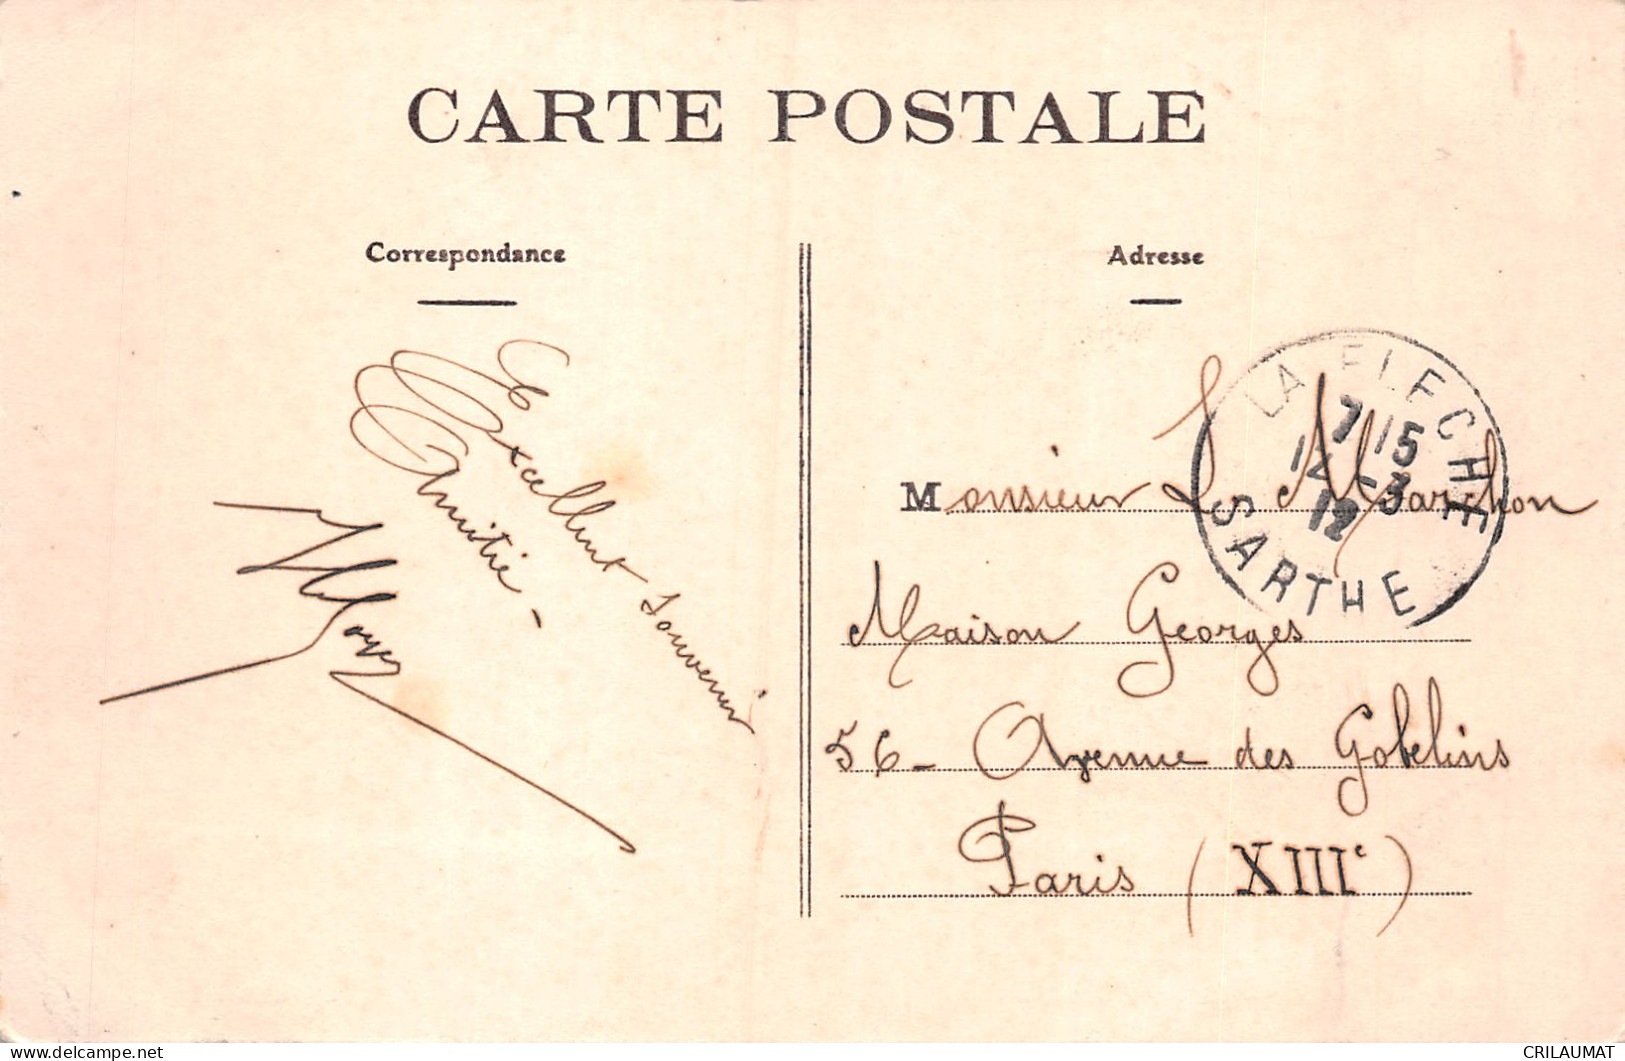 CARTE POSTALE
Correspondance
Excellent souvenir
Amitié -
Adresse
LA FLECHE
7 15
14 - 3
12
SARTHE
Monsieur L. Marchon
Maison Georges
56 - Avenue des Gobelins
Paris (XIIIe)
CRILAUMAT